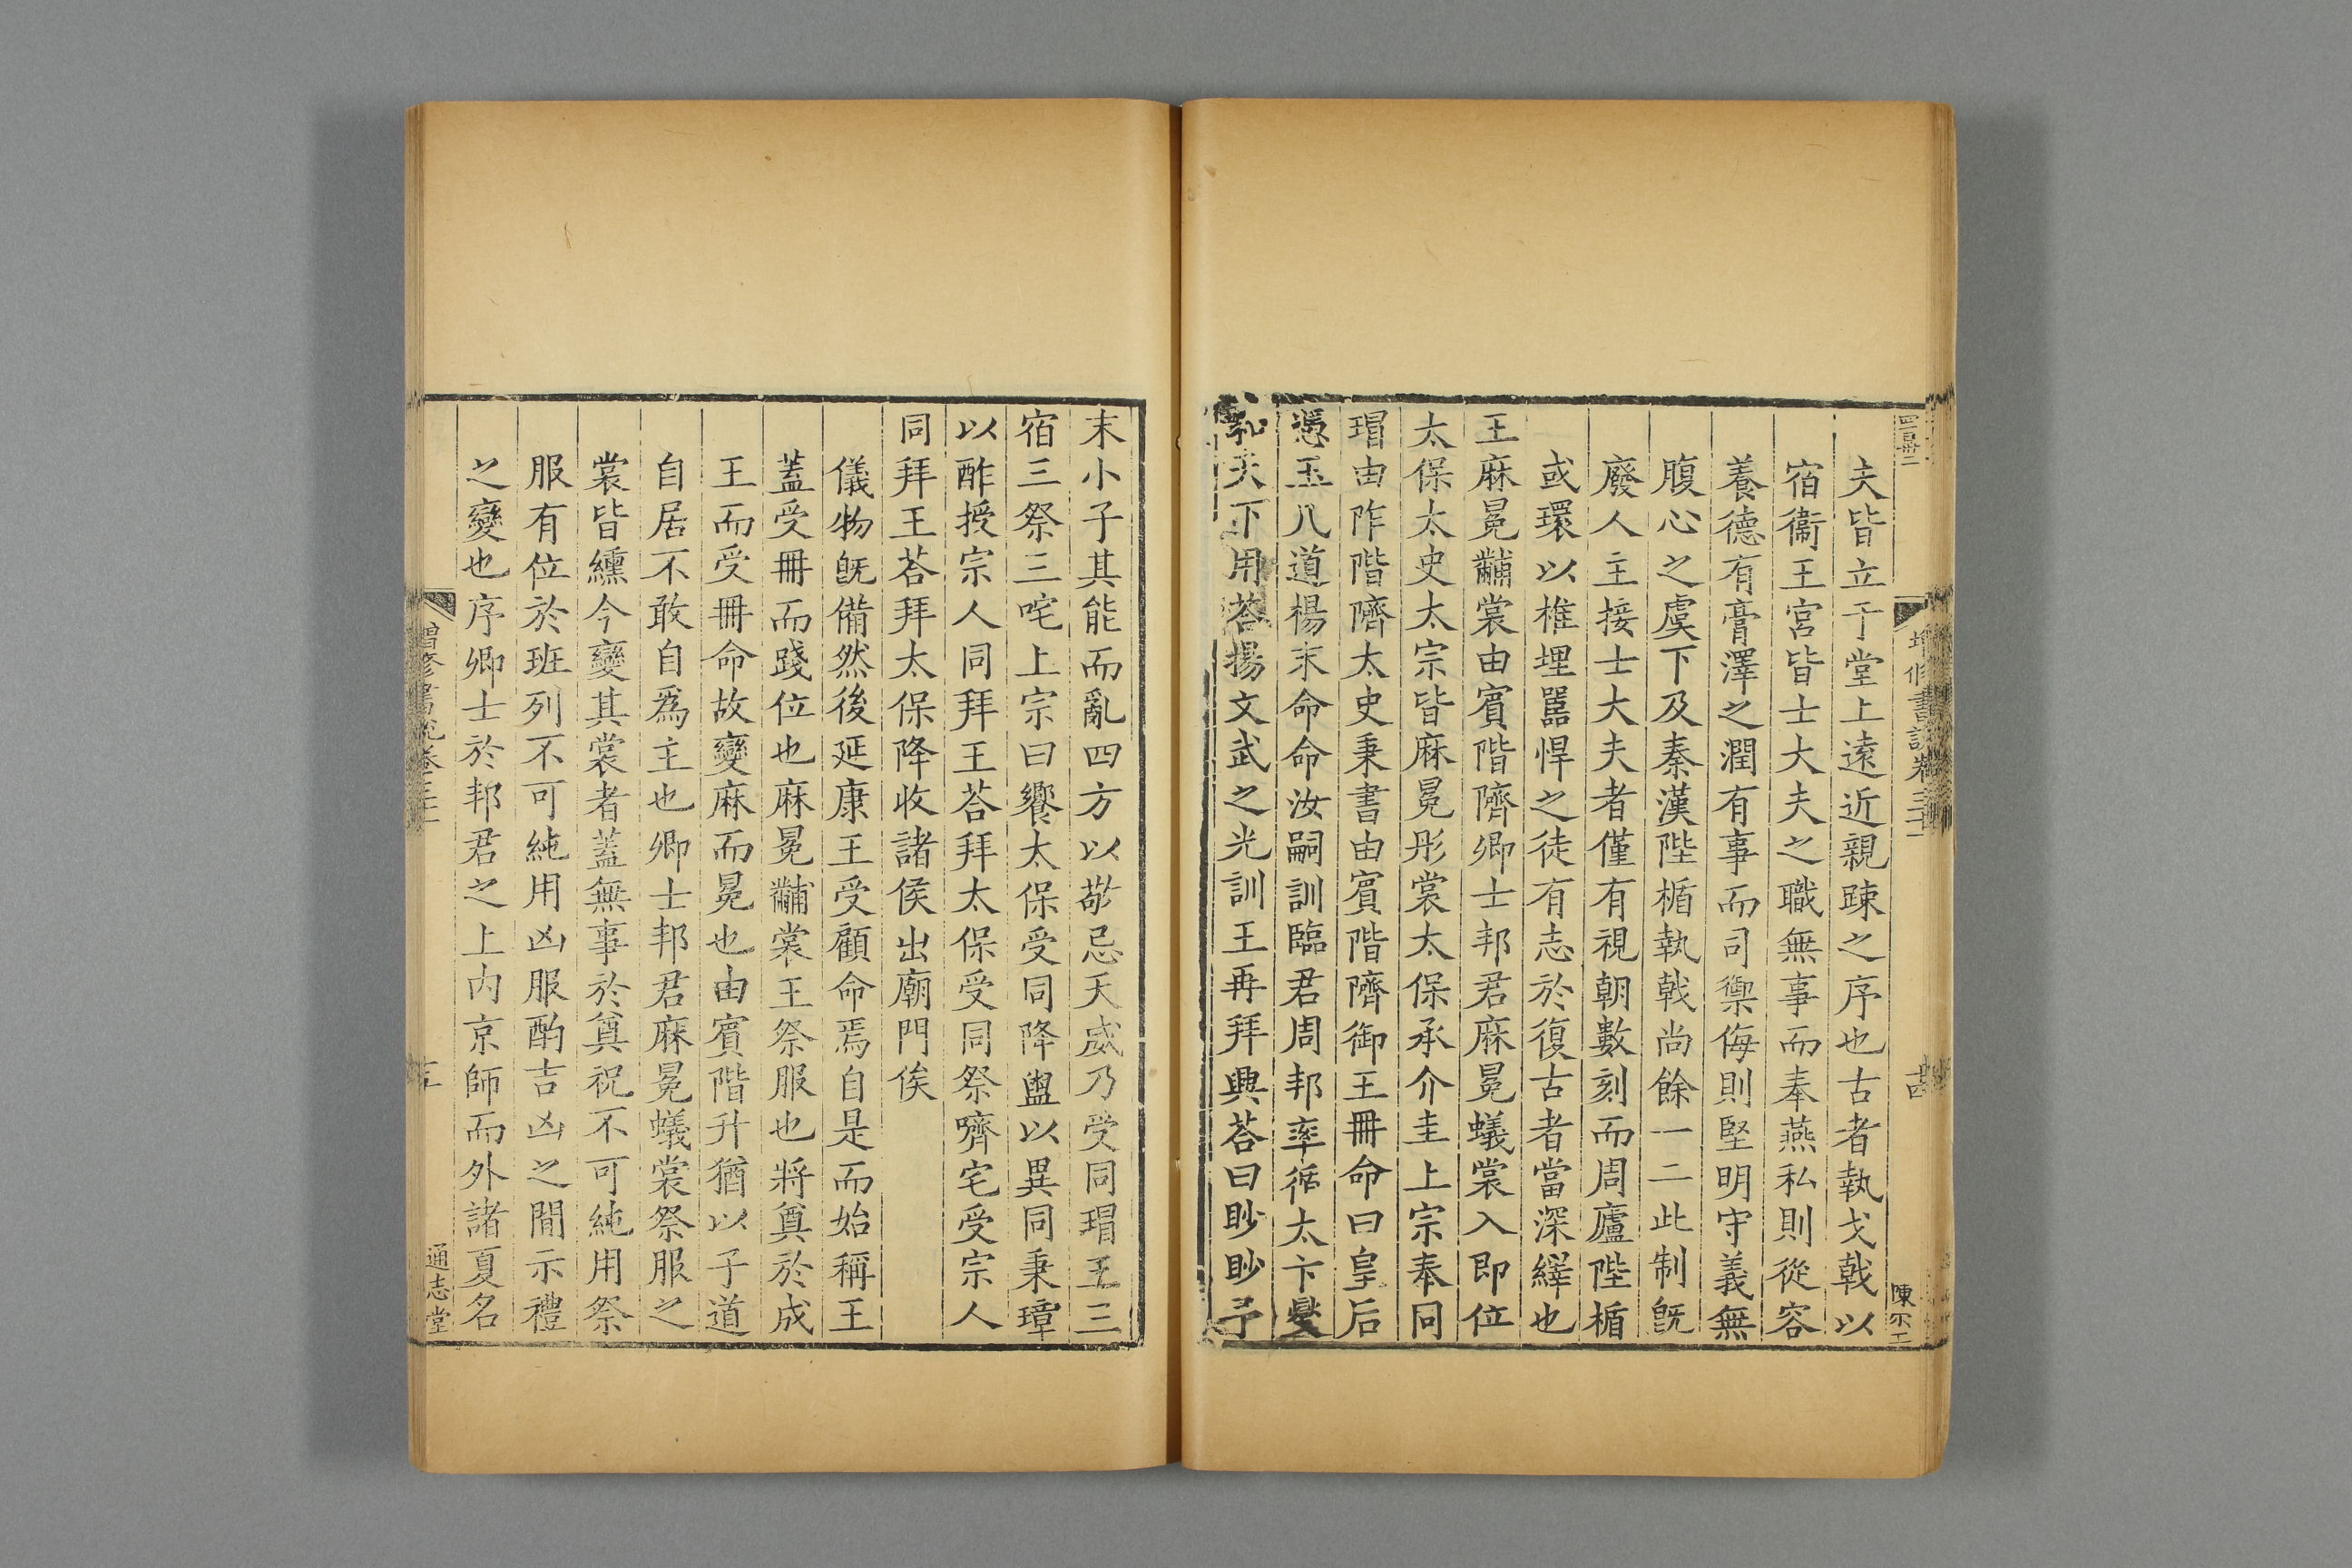 夫皆立于堂上遠近親踈之序也古者執戈戟以
宿衞王宮皆士大夫之職無事而奉燕私則從容
養德有膏澤之潤有事而司禦侮則堅明守義無
腹心之虞下及秦漢陛楯執戟尚餘一二此制旣
廢人主接士大夫者僅有視朝數刻而周廬陛楯
或環以椎埋嚚悍之徒有志於復古者當深繹也
王麻冕黼裳由賓階隮卿士邦君麻冕蟻裳入即位
太保太史太宗皆麻冕彤裳太保承介圭上宗奉同
瑁由阼階隮太史秉書由賓階隮御王冊命曰皇后
憑玉几道楊末命命汝嗣訓臨君周邦率循太卞燮
和天下用荅揚文武之光訓王再拜興荅曰眇眇予
末小子其能而亂四方以敬忌天威乃受同瑁王三
宿三祭三咤上宗曰饗太保受同降盥以異同秉璋
以酢授宗人同拜王荅拜太保受同祭嚌宅受宗人
同拜王荅拜太保降收諸侯出廟門俟
儀物旣備然後延康王受顧命焉自是而始稱王
蓋受冊而踐位也麻冕黼裳王祭服也將奠於成
王而受冊命故變麻而冕也由賓階升猶以子道
自居不敢自爲主也卿士邦君麻冕蟻裳祭服之
裳皆纁今變其裳者蓋無事於奠祝不可純用祭
服有位於班列不可純用凶服酌吉凶之間示禮
之變也序卿士於邦君之上内京師而外諸夏名
增修書說卷三十一
通志堂